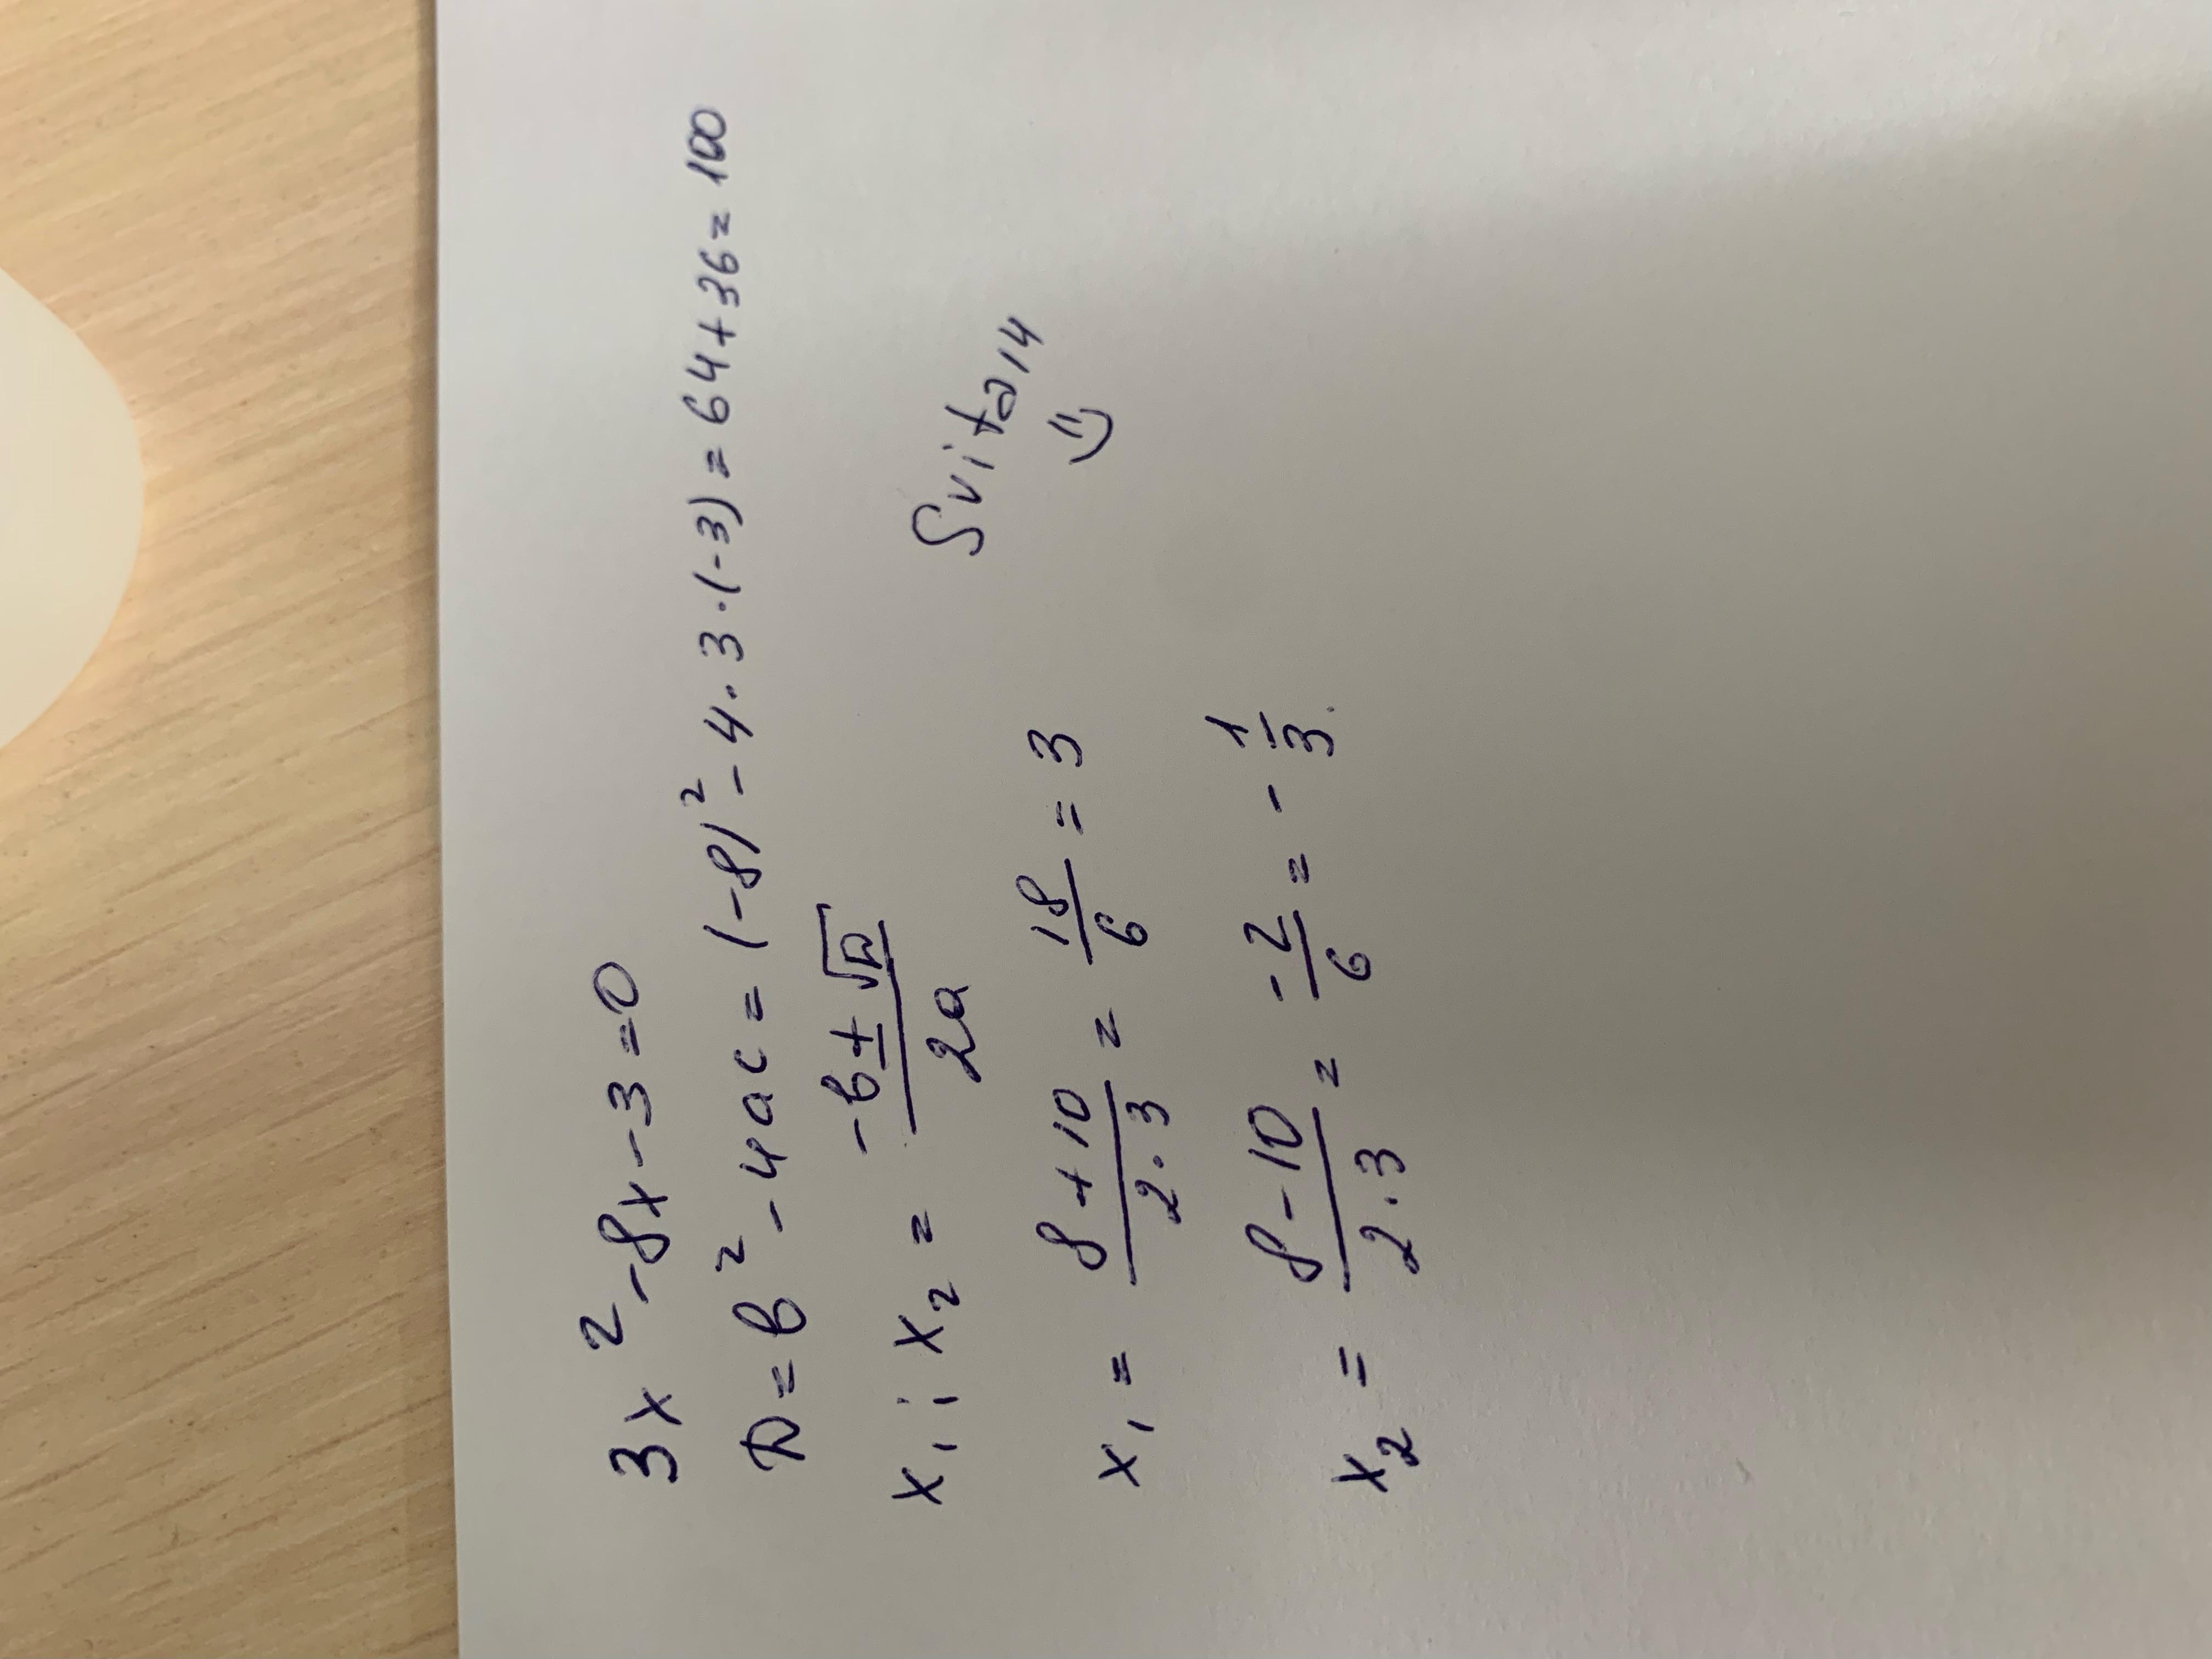 3x² - 8x - 3 = 0
D = b² - 4ac = (-8)² - 4 · 3 · (-3) = 64 + 36 = 100
x₁; x₂ = (-b ± √D) / 2a
x₁ = (8 + 10) / (2 · 3) = 18/6 = 3
x₂ = (8 - 10) / (2 · 3) = -2/6 = - 1/3.
Svita14
=)